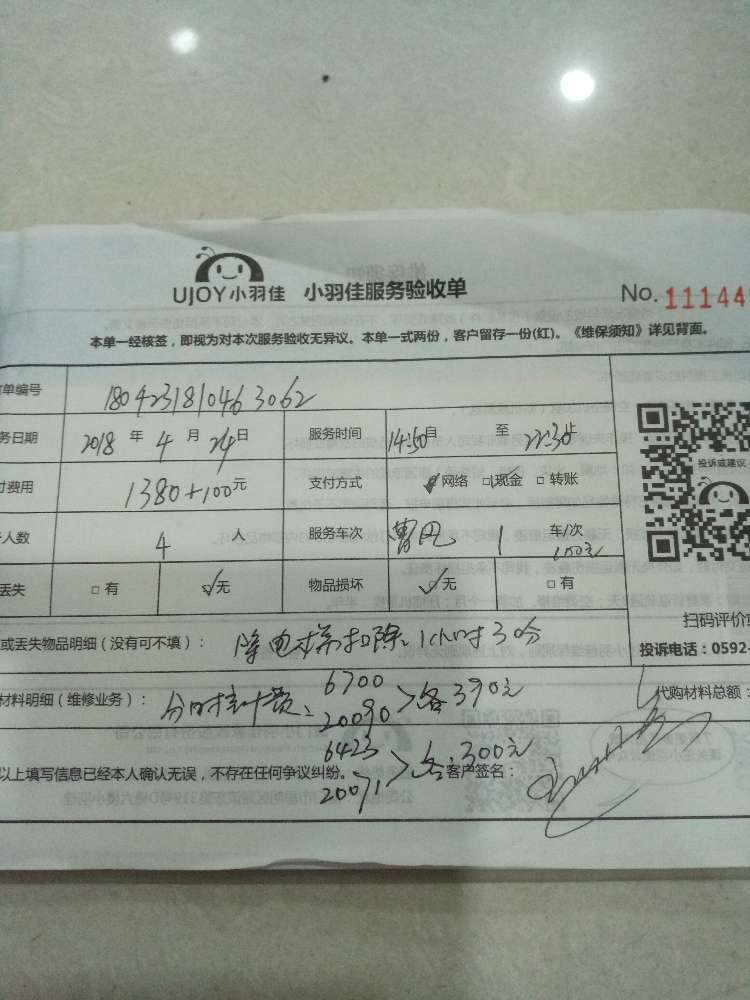 UJOY小羽佳 小羽佳服务验收单 No. 11144
本单一经核签，即视为对本次服务验收无异议。本单一式两份，客户留存一份(红)。《维保须知》详见背面。
单编号 1804231810463062
务日期 2018 年 4 月 24 日 服务时间 14:30 自 至 22:30 止
付费用 1380+100元 支付方式 网络 □现金 □转账
人数 4 人 服务车次 1 车/次
100元
丢失 □有 无 物品损坏 无 □有
投诉或建议
扫码评价
或丢失物品明细（没有可不填）： 降电梯扣除1小时3 投诉电话：0592-
材料明细（维修业务）： 6700 各390元 代购材料总额：
20090
6423 各300元
以上填写信息已经本人确认无误，不存在任何争议纠纷。 客户签名：
20071